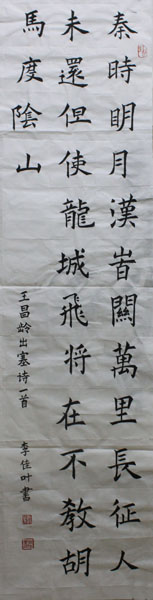 秦時明月漢旹關萬里長征人
未還但使龍城飛将在不教胡
馬度陰山
王昌龄出塞诗一首
李佳叶書